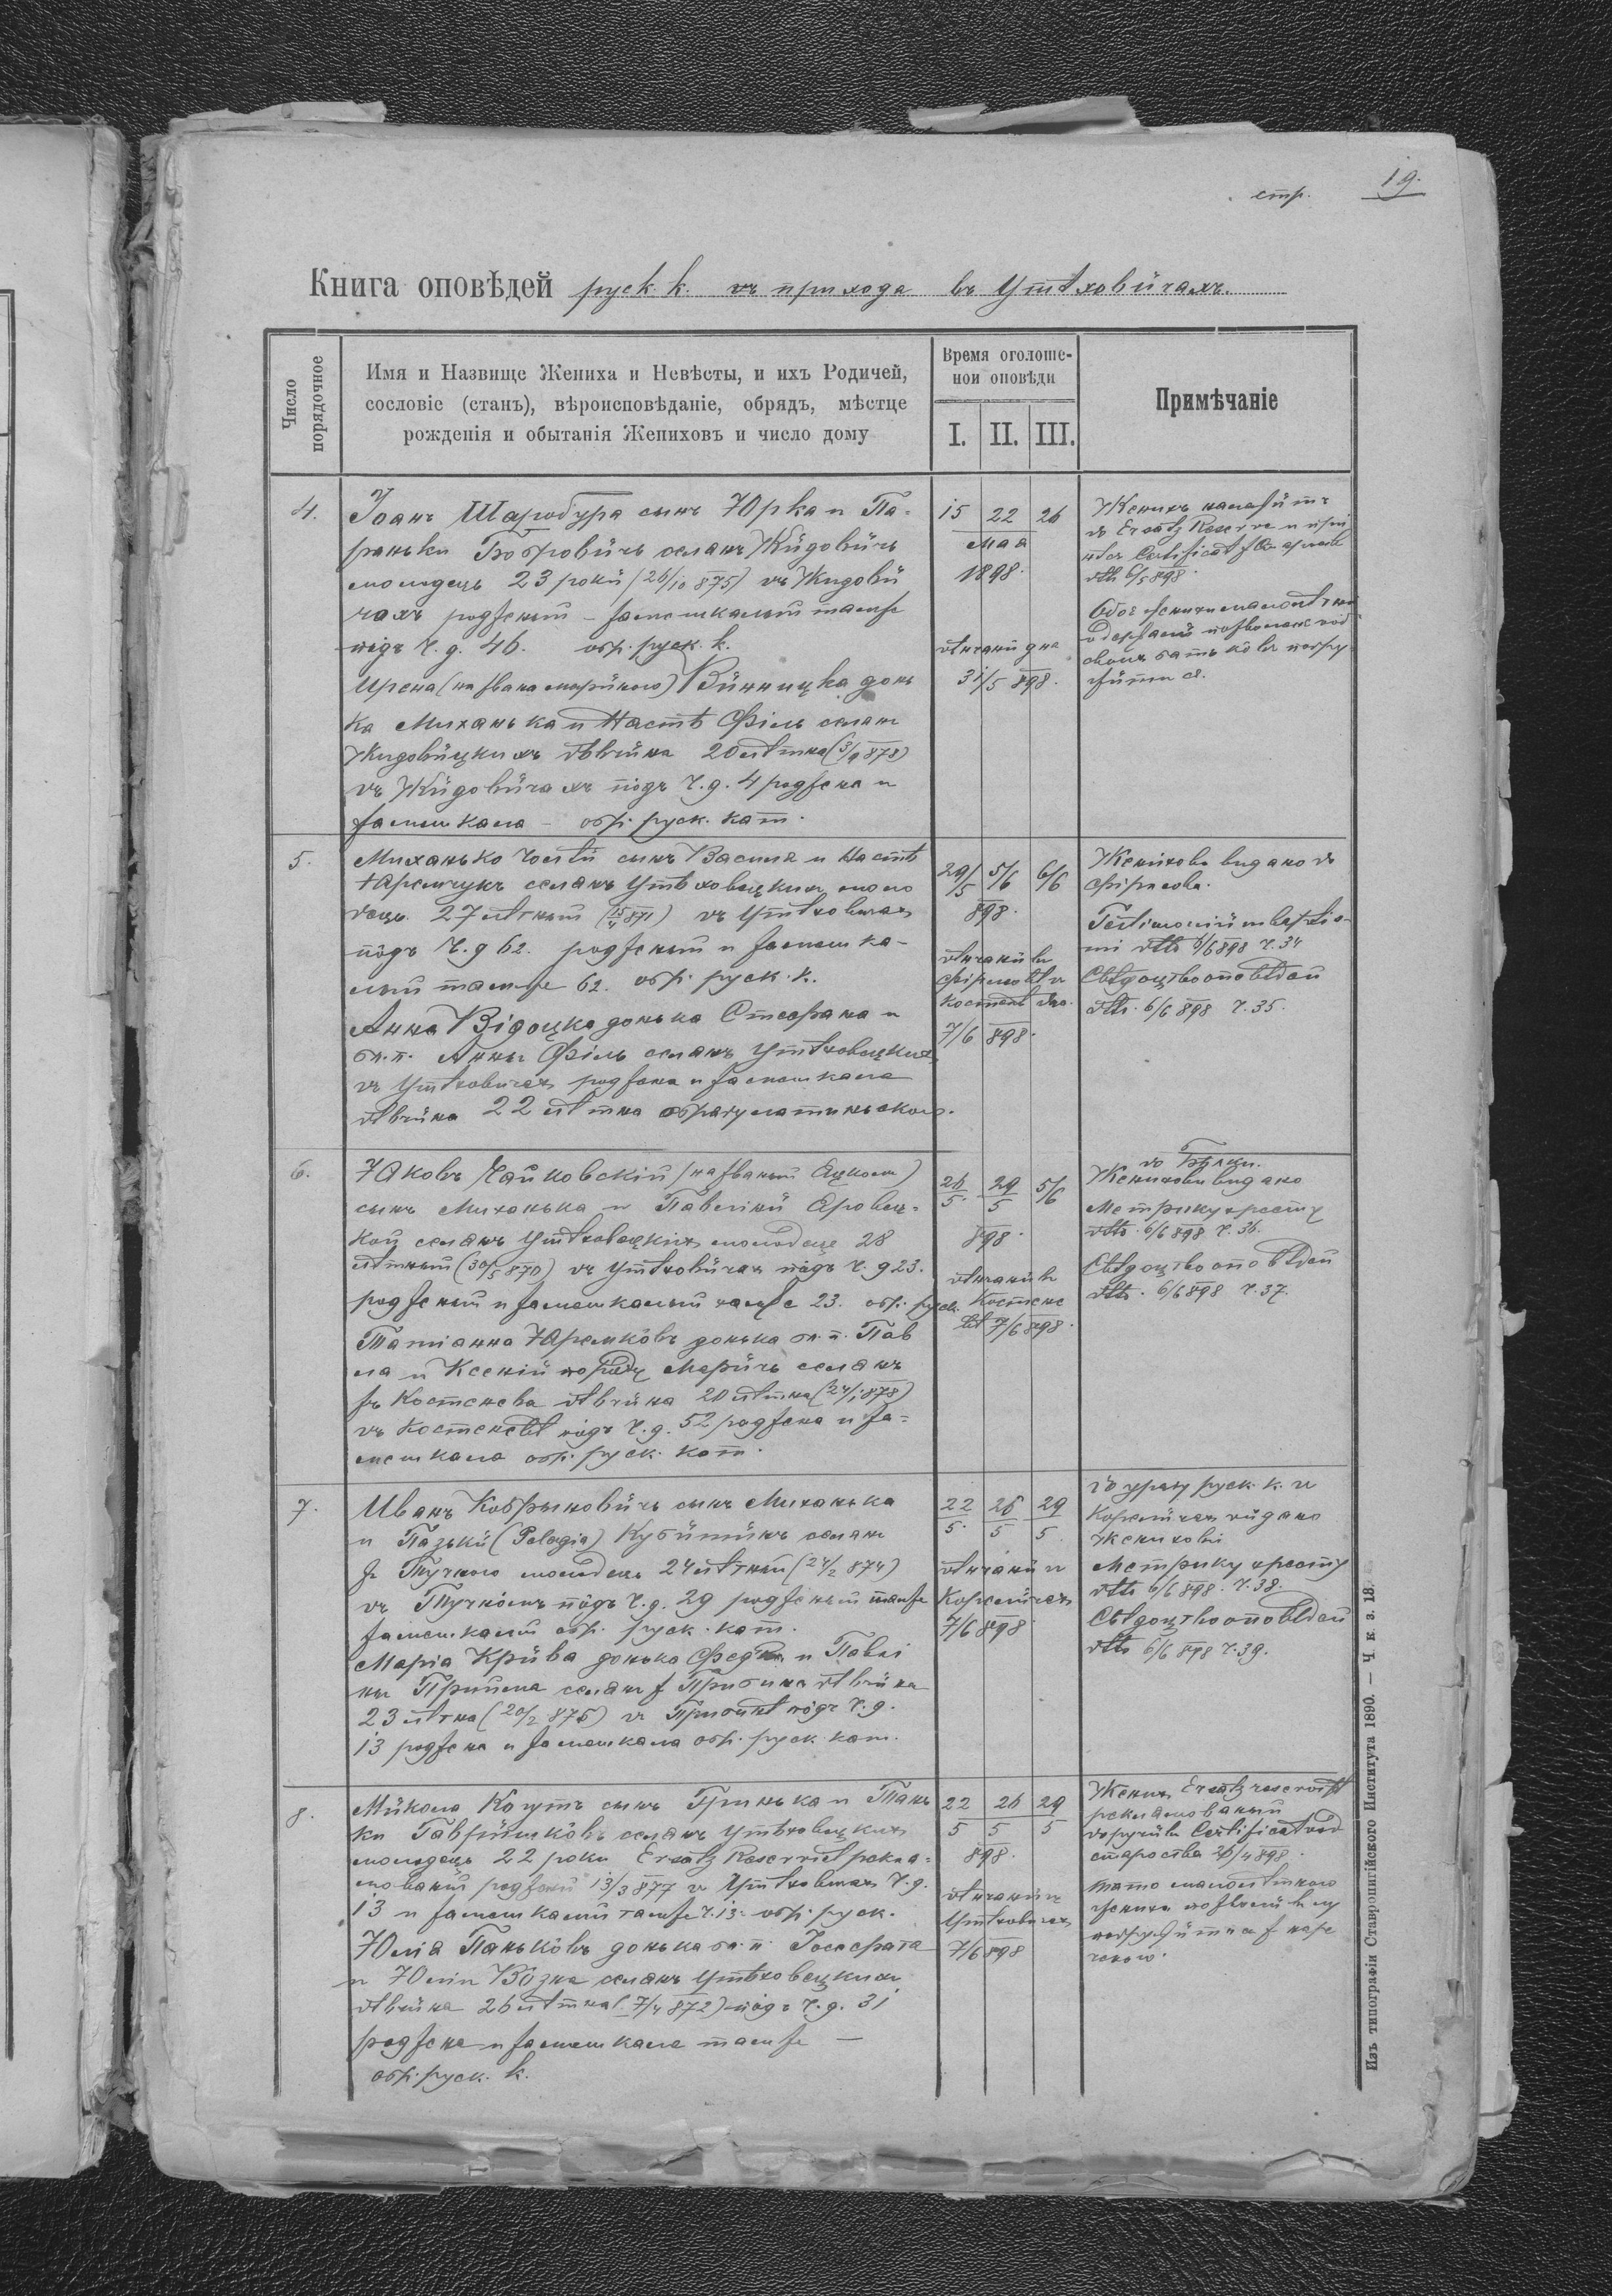 стр. 19.
Книга оповѣдей руск. к. въ прихода въ Утѣховичахъ.
Число порядочное
Имя и Назвище Жениха и Невѣсты, и ихъ Родичей,
сословіе (станъ), вѣроисповѣданіе, обрядъ, мѣстце
рожденія и обытанія Жениховъ и число дому
Время оголоше-
нои оповѣди
I. II. III.
Примѣчаніе
4.
Іоанъ Шаробура сынъ Юрка и Па-
раньки Бобровичъ селанъ Жидовичъ
молодецъ 23 роки (26/10 875) въ Жидови
чахъ родженый – замешкалый тамже
підъ Ч. д. 46. обр. руск. к.
Ирена (на звана Марійкою) Винницка донь
ка Миханька и Настѣ Філь селанъ
Жидовицкихъ дѣвчина 20 лѣтна (3/9 878)
въ Жидовичахъ підъ Ч. д. 4 роджена и
замешкала – обр. руск. кат.
15 22 26
мая
1898.
вѣнчанй дна
31/5 898.
Женихъ належитъ
до Ersatz Reserve и
Certificat
dtto 6/5 898.
5.
Миханько сынъ Василя и Настѣ
Яремчукъ селанъ Утѣховецкихъ моло
децъ 27 лѣтный (15/4 871) въ Утѣховичах
підъ Ч. д 62. родженый и замешка-
лый тамже 62. обр. руск. к.
Анна Відоцка донька Стефана и
бл. п. Анны Філь селанъ Утѣховецких
въ Утѣховичах роджена и замешкала
дѣвчина 22 лѣтна обряду латиньского.
29/5 5/6 6/6
898.
вѣнчанй въ
костелѣ дна.
7/6 898.
Женихови видано до
Фірлеева.
Testimonium baptis-
mi dtto 6/6 898 Ч. 34
Свѣдоцтво оповѣдей
dtto. 6/6 898 Ч. 35.
6.
Яковъ Чайковскій (на званый Яцком)
сынъ Миханька и Павліни Яровец-
кои селанъ Утѣховецких молодецъ 28
лѣтный (30/5 870) въ Утѣховичах підъ Ч. д 23.
родженый и замешкалый тамже 23. обр. руск.
Татіанна Яремківъ донька бл. п. Пав
ла и Ксеніи Мариічъ селанъ
зъ Костенева дѣвчина 20 лѣтна (24/1 878)
въ Костеневѣ підъ Ч. д. 52 роджена и за-
мешкала обр. руск. кат.
26/5. 29/5 5/6
898.
вѣнчанй въ
Костене
вѣ 7/6 898.
Женихови видано
Метрику кресту
dtto. 6/6 898 Ч. 36.
Свѣдоцтво оповѣдей
dtto. 6/6 898 Ч. 37.
7.
Иванъ Кобрыновичъ сынъ Миханька
и Пазьки (Pelagia) селанъ
з Тучного молодецъ 24 лѣтный (24/2 874)
въ Тучнімъ підъ Ч. д. 29 родженый тамже
замешкалый обр. руск. кат.
Марія Крива донька и Павлі
ны Прийма селанъ з Прибина дѣвчина
23 лѣтна (20/2 875) въ Прибинѣ підъ Ч. д.
13 роджена и замешкала обр. руск. кат.
22/5. 26/5 29/5
вѣнчанй в
Корелічах
7/6 898
До уряду руск. к. в
Корелічах видано
женихові
Метрику кресту
dtto 6/6 898. Ч. 38.
Свѣдоцтво оповѣдей
dtto 6/6 898 Ч. 39.
8.
Микола Когутъ сынъ Гринька и Тань
ки Гавришківъ селанъ Утѣховецких
молодецъ 22 роки Ersatz Reservist рекла-
мованый роджен 13/3 877 въ Утѣховичах Ч. д.
13 и замешкалый тамже Ч. 13. обр. руск.
Юлія Паньківъ донька бл. п. Іосафата
и Юліи Возна селанъ Утѣховецких
дѣвчина 26 лѣтна (7/4 872) підъ Ч. д. 31
роджена и замешкала тамже –
обр. руск. к.
22/5 26/5 29/5
898.
вѣнчанй в
Утѣховичах
7/6 898
Жених Ersatz reservist
рекламованый
доручивъ Certificat від
староства 26/4 898.
Изъ типографіи Ставропигійского Института 1890. — Ч. к. з. 18.